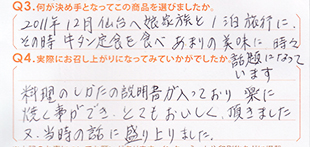 Q3.何が決め手となってこの商品を選びましたか。
2011年12月仙台へ娘家族と1泊旅行に、
その時牛タン定食を食べあまりの美味に時々
Q4.実際にお召し上がりになってみていかがでしたか。
話題になって
います
料理のしかたの説明書が入っており楽に
焼く事ができ、とてもおいしく頂きました
又、当時の話に盛り上りました。